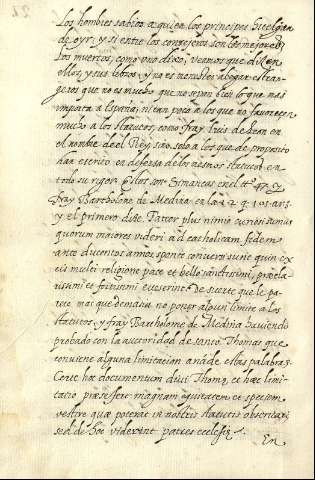 Los hombres sabios a quien los principes huelgan
de oyr, y si entre los consejeros son los mejores
los muertos, como uno dixo, veamos que dizen
ellos, y sus libros, y no es menester alegar estran-
geros que no es mucho que no sepan bien lo que mas
importa a España, ni tan poco a los que no favorecen
mucho a los statutos, como fray Luis de Leon en
el nombre de el Rey sino solo a los que de proposito
han escrito en defensa de los mesmos statutos en
todo su rigor. Estos son Simancas en el tt. 47. y
fray Bartholome de Medina en la 1. 2. q. 101. ar. 3.
y el primero dize. Fateor plus nimio curiosi sumus
quorum maiores videri ad catholicam fidem
ante ducentos annos sponte conversi sunt quin ex
eis multi religione pace et bello sanctissimi, præcla-
rissimi et fortissimi evaserint. De suerte que le pa-
rece mas que demasia no poner algun limite a los
statutos. y fray Bartholome de Medina haviendo
probado con la autoridad de sancto Thomas que
conviene alguna limitacion añade estas palabras.
Certe hoc documentum divi Thomę, et hæc limi-
tatio præsefert magnam equitatem et speciem
vestre quæ poterat in nostris statutis observari
sed de hoc viderint patres ecclesię.
En